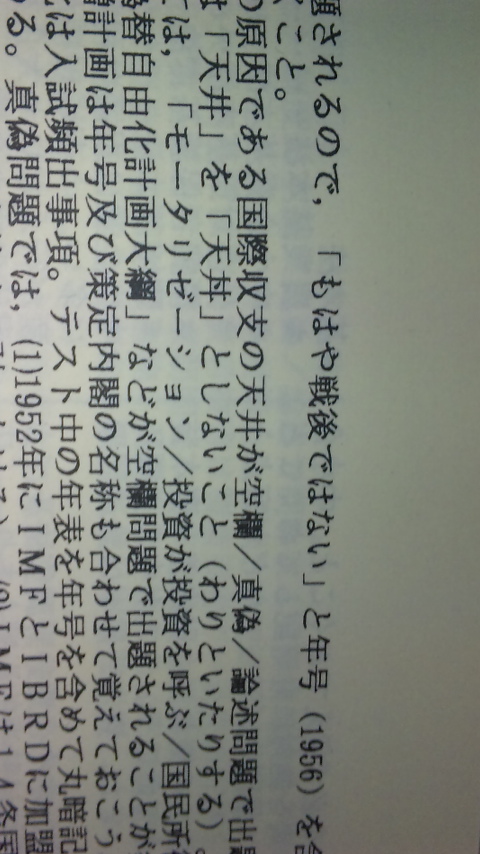 題されるので，「もはや戦後ではない」と年号（1956）を
こと。
原因である国際収支の天井が空欄／真偽／論述問題で出
「天井」を「天丼」としないこと（わりといたりする）。
は，「モータリゼーション／投資が投資を呼ぶ／国民所
替自由化計画大綱」などが空欄問題で出題されることが
計画は年号及び策定内閣の名称も合わせて覚えておこう
は入試頻出事項。テスト中の年表を年号を含めて丸暗記
る。真偽問題では，(1)1952年にＩＭＦとＩＢＲＤに加盟
(2)ＩＭＦは１４条国